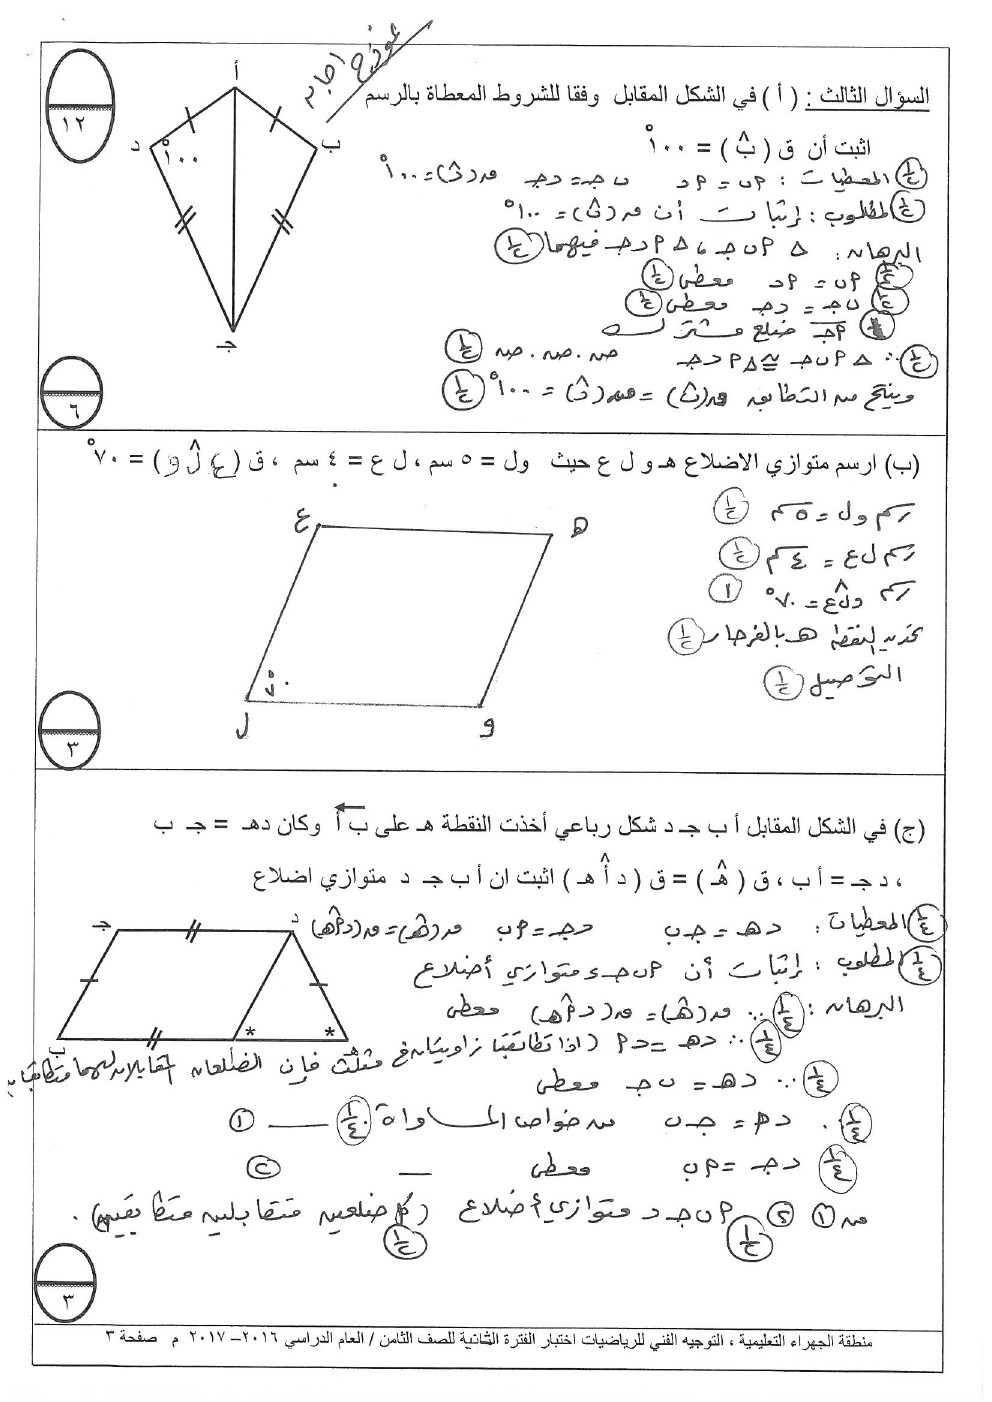 نموذج اجابه
السؤال الثالث : ( أ ) في الشكل المقابل وفقا للشروط المعطاة بالرسم
اثبت أن ق ( بˆ ) = ١٠٠°
١٢
أ
د
ب
١٠٠°
جـ
٦
½ المعطيات : أب = أد   ب جـ = د جـ   ق(دˆ) = ١٠٠°
½ المطلوب : إثبات أن ق(بˆ) = ١٠٠°
البرهان : ∆ أ ب جـ ، ∆ أ د جـ فيهما ½
½ أب = أد معطى ½
½ ب جـ = د جـ معطى ½
أ جـ ضلع مشترك
½ ∴ ∆ أ ب جـ ≅ ∆ أ د جـ   ض . ض . ض ½
وينتج من التطابق ق(بˆ) = ق(دˆ) = ١٠٠° ½
(ب) ارسم متوازي الاضلاع هـ و ل ع حيث   ول = ٥ سم ، ل ع = ٤ سم ، ق ( ع لˆ و ) = ٧٠°
رسم ول = ٥ سم ½
رسم ل ع = ٤ سم ½
رسم و لˆ ع = ٧٠° ١
تحديد النقطة هـ بالفرجار ½
التوصيل ½
ع
هـ
٧٠°
ل
و
٣
(ج) في الشكل المقابل أ ب جـ د شكل رباعي أخذت النقطة هـ على ب أ وكان دهـ = جـ ب
، د جـ = أ ب ، ق ( هˆـ ) = ق ( د أˆ هـ ) اثبت ان أ ب جـ د متوازي اضلاع
جـ
د
ب
هـ
* *
¼ المعطيات : د هـ = جـ ب   د جـ = أ ب   ق(هˆـ) = ق(د أˆ هـ)
¼ المطلوب : إثبات أن أ ب جـ د متوازي أضلاع
البرهان : ¼ ∵ ق(هˆـ) = ق(د أˆ هـ) معطى
¼ ∴ د هـ = د أ (اذا تطابقتا زاويتان في مثلث فإن الضلعان المقابلان لهما متطابقان)
¼ ∵ د هـ = ب جـ معطى
¼ ∴ د أ = جـ ب   من خواص المساواة ¼ ــــ ①
¼ د جـ = أ ب   معطى   ــ   ②
من ① ② أ ب جـ د متوازي أضلاع (كل ضلعين متقابلين متطابقين) .
½ ½
٣
منطقة الجهراء التعليمية ، التوجيه الفني للرياضيات اختبار الفترة الثانية للصف الثامن / العام الدراسي ٢٠١٦– ٢٠١٧ م صفحة ٣